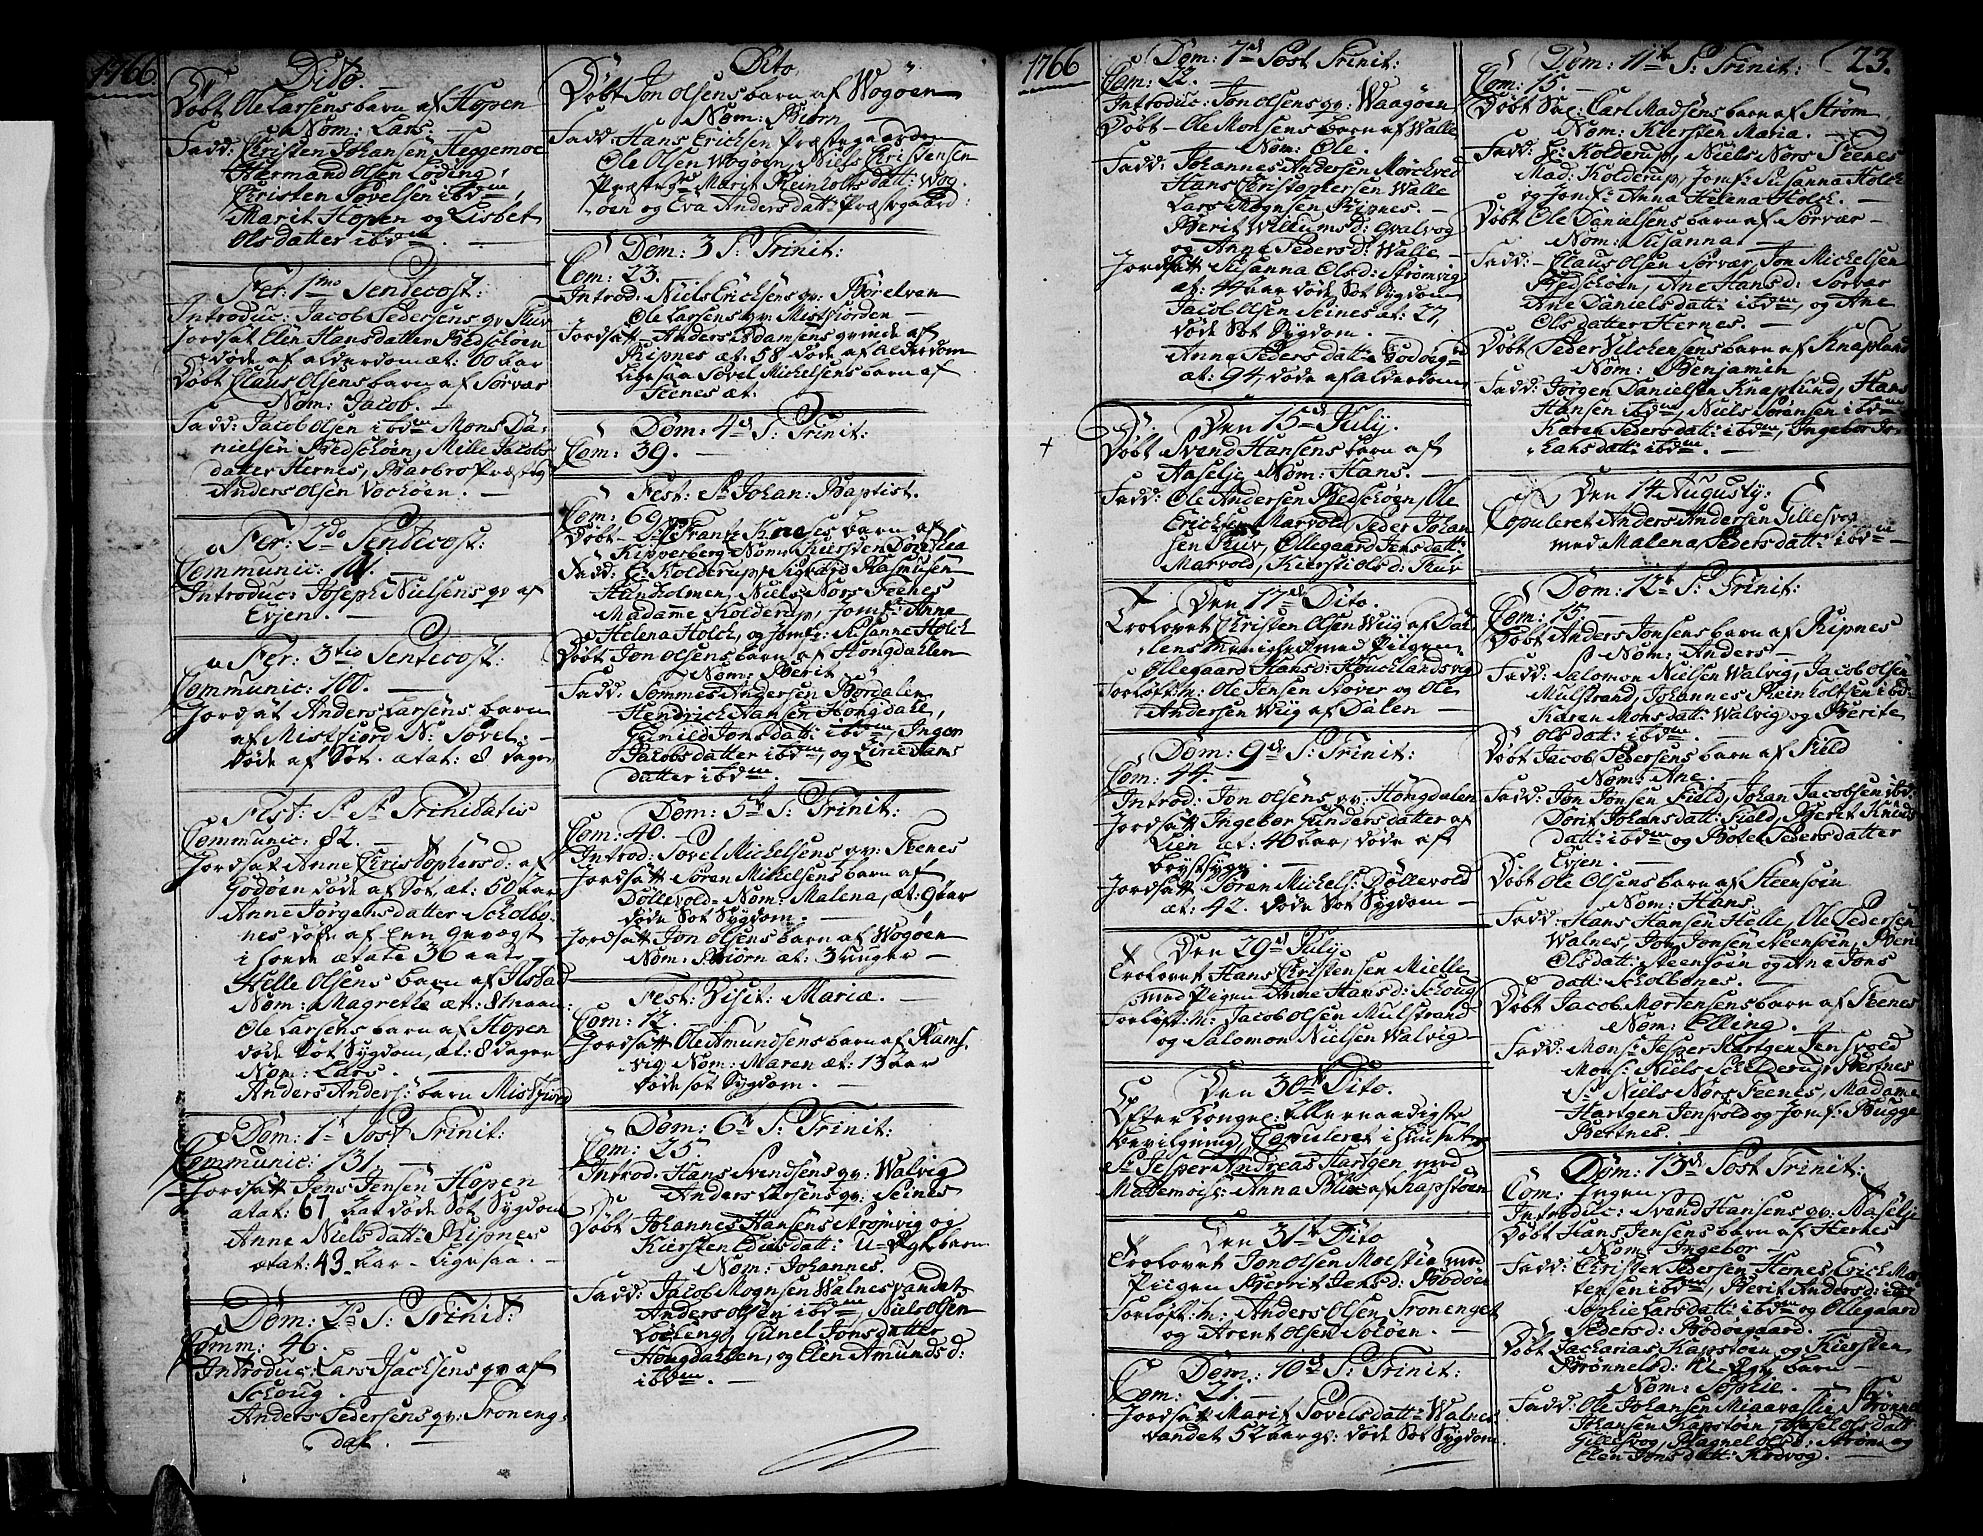 1766
Dito.
Døbt Ole Larsens barn af Hopen
Nom: Lars.
Fadd: Christen Johansen Heggemoe
Hermand Olsen Løding,
Christen Povelsen ibdm
Marit Hopen og Lisbet
Olsdatter ibdm
Fer: 1mo Pentecost:
Introduc: Jacob Pedersens qv
Jordsat Elen Hansdatter Bredschøen
døde af alderdom æt: 60 aar
Døbt Claus Olsens barn af Sørvær
Nom: Jacob.
Fadd: Jacob Olsen ibdm Mons Da-
nielsen Bredschøen, Mille Jacobs
datter Hernes, Barbro Præsteg
Anders Olsen Vochøen.
Fer: 2do Pentecost:
Communic: 101.
Introduc: Joseph Nielsens qv af
Evjen.
Fer: 3tio Pentecost:
Communic: 100.
Jordsat Anders Larsens barn
af Mistfiord N: Povel.
døde af Sot. ætat: 8 dager
Fest: S. St. Trinitatis
Communic: 82.
Jordsat Anne Christophersd: af
Godøen døde af Sot, æt: 50 aar
Anne Jørgensdatter Scholbo-
nes døde af Enn
ætate 36 aar
Helle Olsens barn af Ilstad
Nom: Magrette æt: 8
Ole Larsens barn af Hopen
døde Sot Sygdom, æt: 8 dager
Nom: Lars.
Anders Anders: barn Mistfiord
Dom: 1t Post Trinit:
Communic: 131
Jordsatt Jens Jensen Hopen
ætat: 67 aar døde Sot Sygdom
Anne Nielsdatt: Ripnes
ætat: 43 aar Ligesaa.
Dom: 2d P: Trinit:
Comm: 46.
Introduc: Lars Isachsens qv af
Schoug.
Anders Pedersens qv: Troneng-
dal.
Dito
Døbt Jon Olsens barn af Wogøen
Nom: Biørn
Fadd: Hans Erichsen Præstegaarden
Ole Olsen Wogøen, Niels Christensen
Præsteg: Marit Reinholtsdatt: Wog
øen og Eva Andersdatt: Præstegaard:
Dom: 3 P: Trinit:
Com: 23.
Introd: Niels Erichsens qv: Børelven
Ole Larsens qv: Mistfiorden
Jordsatt Anders Adamsens qvinde af
Ripnes æt: 58 døde af alderdom
Ligesaa Povel Michelsens barn af
Teenes æt:
Dom: 4d P: Trinit:
Com: 39.
Fest: St Johan: Baptist.
Com: 69
Døbt Frantz barn af
Kipperberg Nom: Kiersten Dorthea
Fadd: Hr Kolderup, Sigvard Rasmusen
Hundholmen, Niels Nors Teenes
Madamme Kolderup, Jomf: Anne
Helena Holck, og Jomfr: Susanne Holck
Døbt Jon Olsens barn af Hongdahlen
Nom: Berit
Fadd: Sommer Andersen Bordalen
Hendrich Hansen Hongdale,
Gunild Jonsdatt: ibdm, Inger
Jacobsdatter ibdm, og Line Hans
datter ibdm
Dom: 5t P: Trinit:
Com: 40.
Introd: Povel Michelsens qv: Teenes
Jordsatt Søren Michelsens barn af
Døllevold Nom: Malena, æt: 9 aar
døde Sot Sygdom.
Jordsatt Jon Olsens barn af Wogøen
Nom: Biørn æt: 3 uger
Fest: Visit: Mariæ.
Com: 12.
Jordsatt Ole Amundsens barn af Rams
vig Nom: Maren æt: 13 aar
døde Sot Sygdom.
Dom: 6t P: Trinit:
Com: 25.
Introd: Hans Svendsens qv: Walvig
Anders Larsens qv: Seines
Døbt Johannes Hansens Strømvig og
Kiersten datt: U-Ægt barn
Nom: Johannes.
Fadd: Jacob Mognsen Walnesvandet
Anders Olsen ibdm, Niels Olsen
Loeleng, Gunel Jonsdatter
Hongdahlen, og Elen Amundsd:
ibdm.
1766
Dom: 7d Post Trinit:
Com: 22.
Introduc: Jon Olsens qv: Waagøen
Døbt Ole Monsens barn af Walle
Nom: Ole.
Fadd: Johannes Andersen Mørckved
Hans Christophersen Walle
Lars Mognsen Ripnes.
Berit Willumsd: Qvalvog
og Anne Pedersd: Walle.
Jordsatt Susanna Olsd: Strømvig
æt: 44 aar døde Sot Sygdom
Jacob Olsen Seines æt: 27,
døde Sot Sygdom.
Anne Pedersdatt: Bodøeg
æt: 94, døde af alderdom
Den 15d July.
Døbt Svend Hansens barn af
Aaselje Nom: Hans.
Fadd: Ole Andersen Bredschøen, Ole
Erichsen Marvold, Peder Johan
sen, Ollegaard Jensdatt:
Marvold, Kiersti Olsd:
Den 17d Dito.
Trolovet Christen Olsen Wiig af Dal
lens Menighed med Pigen
Ollegaard Hansd: Houchlandsvig
Forløft: m: Ole Jensen Støver og Ole
Andersen Wiig af Dalen
Dom: 9d P: Trinit:
Com: 44.
Introd: Jon Olsens qv: Hongdalen
Jordsatt Ingebor Gundersdatter af
Lien æt: 46 aar, døde af
brystsyge.
Jordsatt Søren Michels: Døllevold
æt: 42. døde Sot Sygdom
Den 29d July.
Trolovet Hans Christensen Mielle
med Pigen Anne Hansd: Schoug
Forløft: m: Jacob Olsen Mulstrand
og Salomon Nielsen Walvig
Den 30t Dito.
Efter Kongel: Allernaadigste
bevilgning, Copuleret i Huuset
Sr Jesper Andreas Hartgen med
Mademois: Anna Blix af Kapstøen
Den 31t Dito
Trolovet Jon Olsen Moestie med
Piigen Berrit Jensd: Bodøen
Forløft: m: Anders Olsen Tronenget
og Arent Olsen Soløen.
Dom: 10d P: Trinit:
Com: 21.
Jordsatt Marit Povelsdatt: Walnes
vandet 52 aar g: døde Sot Sygdom
23.
Dom: 11te P: Trinit:
Com: 15.
Døbt Carl Madsens barn af Strøm
Nom: Kiersten Maria.
Fadd: Hr: Kolderup, Niels Nors Teenes
Mad: Kolderup, Jomf: Susanna Holck
og Jomf: Anna Helena Holck.
Døbt Ole Danielsens barn af Sørvær
Nom: Susanna
Fadd: Claus Olsen Sørvær, Jon Michelsen
Bredschøen, Ane Hansd: Sørvær
Ane Danielsdatt: ibdm, og Ane
Olsdatter Hernes.
Døbt Peder Wilchensens barn af Knaplund
Nom: Benjamin
Fadd: Jørgen Danielsen Knaplund, Hans
Hansen ibdm, Niels Sørensen ibdm
Karen Pedersdatt: ibdm, Ingebor Jo-
hansdatt: ibdm.
Den 14 Augusty:
Copuleret Anders Andersen Gillesvog
med Malena Pedersdatt: ibdm
Dom: 12t P: Trinit:
Com: 15.
Døbt Anders Jonsens barn af Ripnes
Nom: Anders
Fadd: Salomon Nielsen Walvig, Jacob Olsen
Mulstrand, Johannes Reinholtsen ibd:
Karen Monsdatt: Walvig og Berite
Olsdatt: ibdm.
Døbt Jacob Pedersens barn af Field
Nom: Ane.
Fadd: Jon Jonsen Field, Johan Jacobsen ibd:
Dorit Johansdatt: Field, Berit Knuds
datt: ibdm og Botel Pedersdatter
Evjen.
Døbt Ole Olsens barn af Steensøen
Nom: Hans.
Fadd: Hans Hansen Helle, Ole Pedersen
Walnes, Jon Jonsen Steensøen, Berit
Olsdatt: Steensøen og Ana Jons
datt: Scholbones.
Døbt Jacob Mortensens barn af Teenes
Nom: Elling.
Fadd: Monsr Jesper Hartgen Jensvold
Mons: Niels Schelderup, Bertnes
Sr Niels Nors Teenes, Madame
Hartgen Jensvold og Jomf: Bugge
Bertnes.
Dom: 13d Post Trinit:
Com: Ingen
Introduc: Svend Hansens qv: Aaselje
Døbt Hans Jensens barn af Hernes
Nom: Ingebor
Fadd: Christen Pedersen Hernes, Erich Mor
tensen ibdm, Berit Andersd: ibd
Sophie Larsdatt: ibdm og Ollegaard
Pedersd: Bodøegaard.
Døbt Zacharias Kapstøen og Kiersten
Brønnelsd: U-Ægt barn
Nom: Sophie.
Fadd: Ole Johansen Miaavastie, Brønnel
Johansen Kapstøen,
Gillesvog, Ragnel Olsd: Strøm og
Elen Jonsdatt: Kodvog.